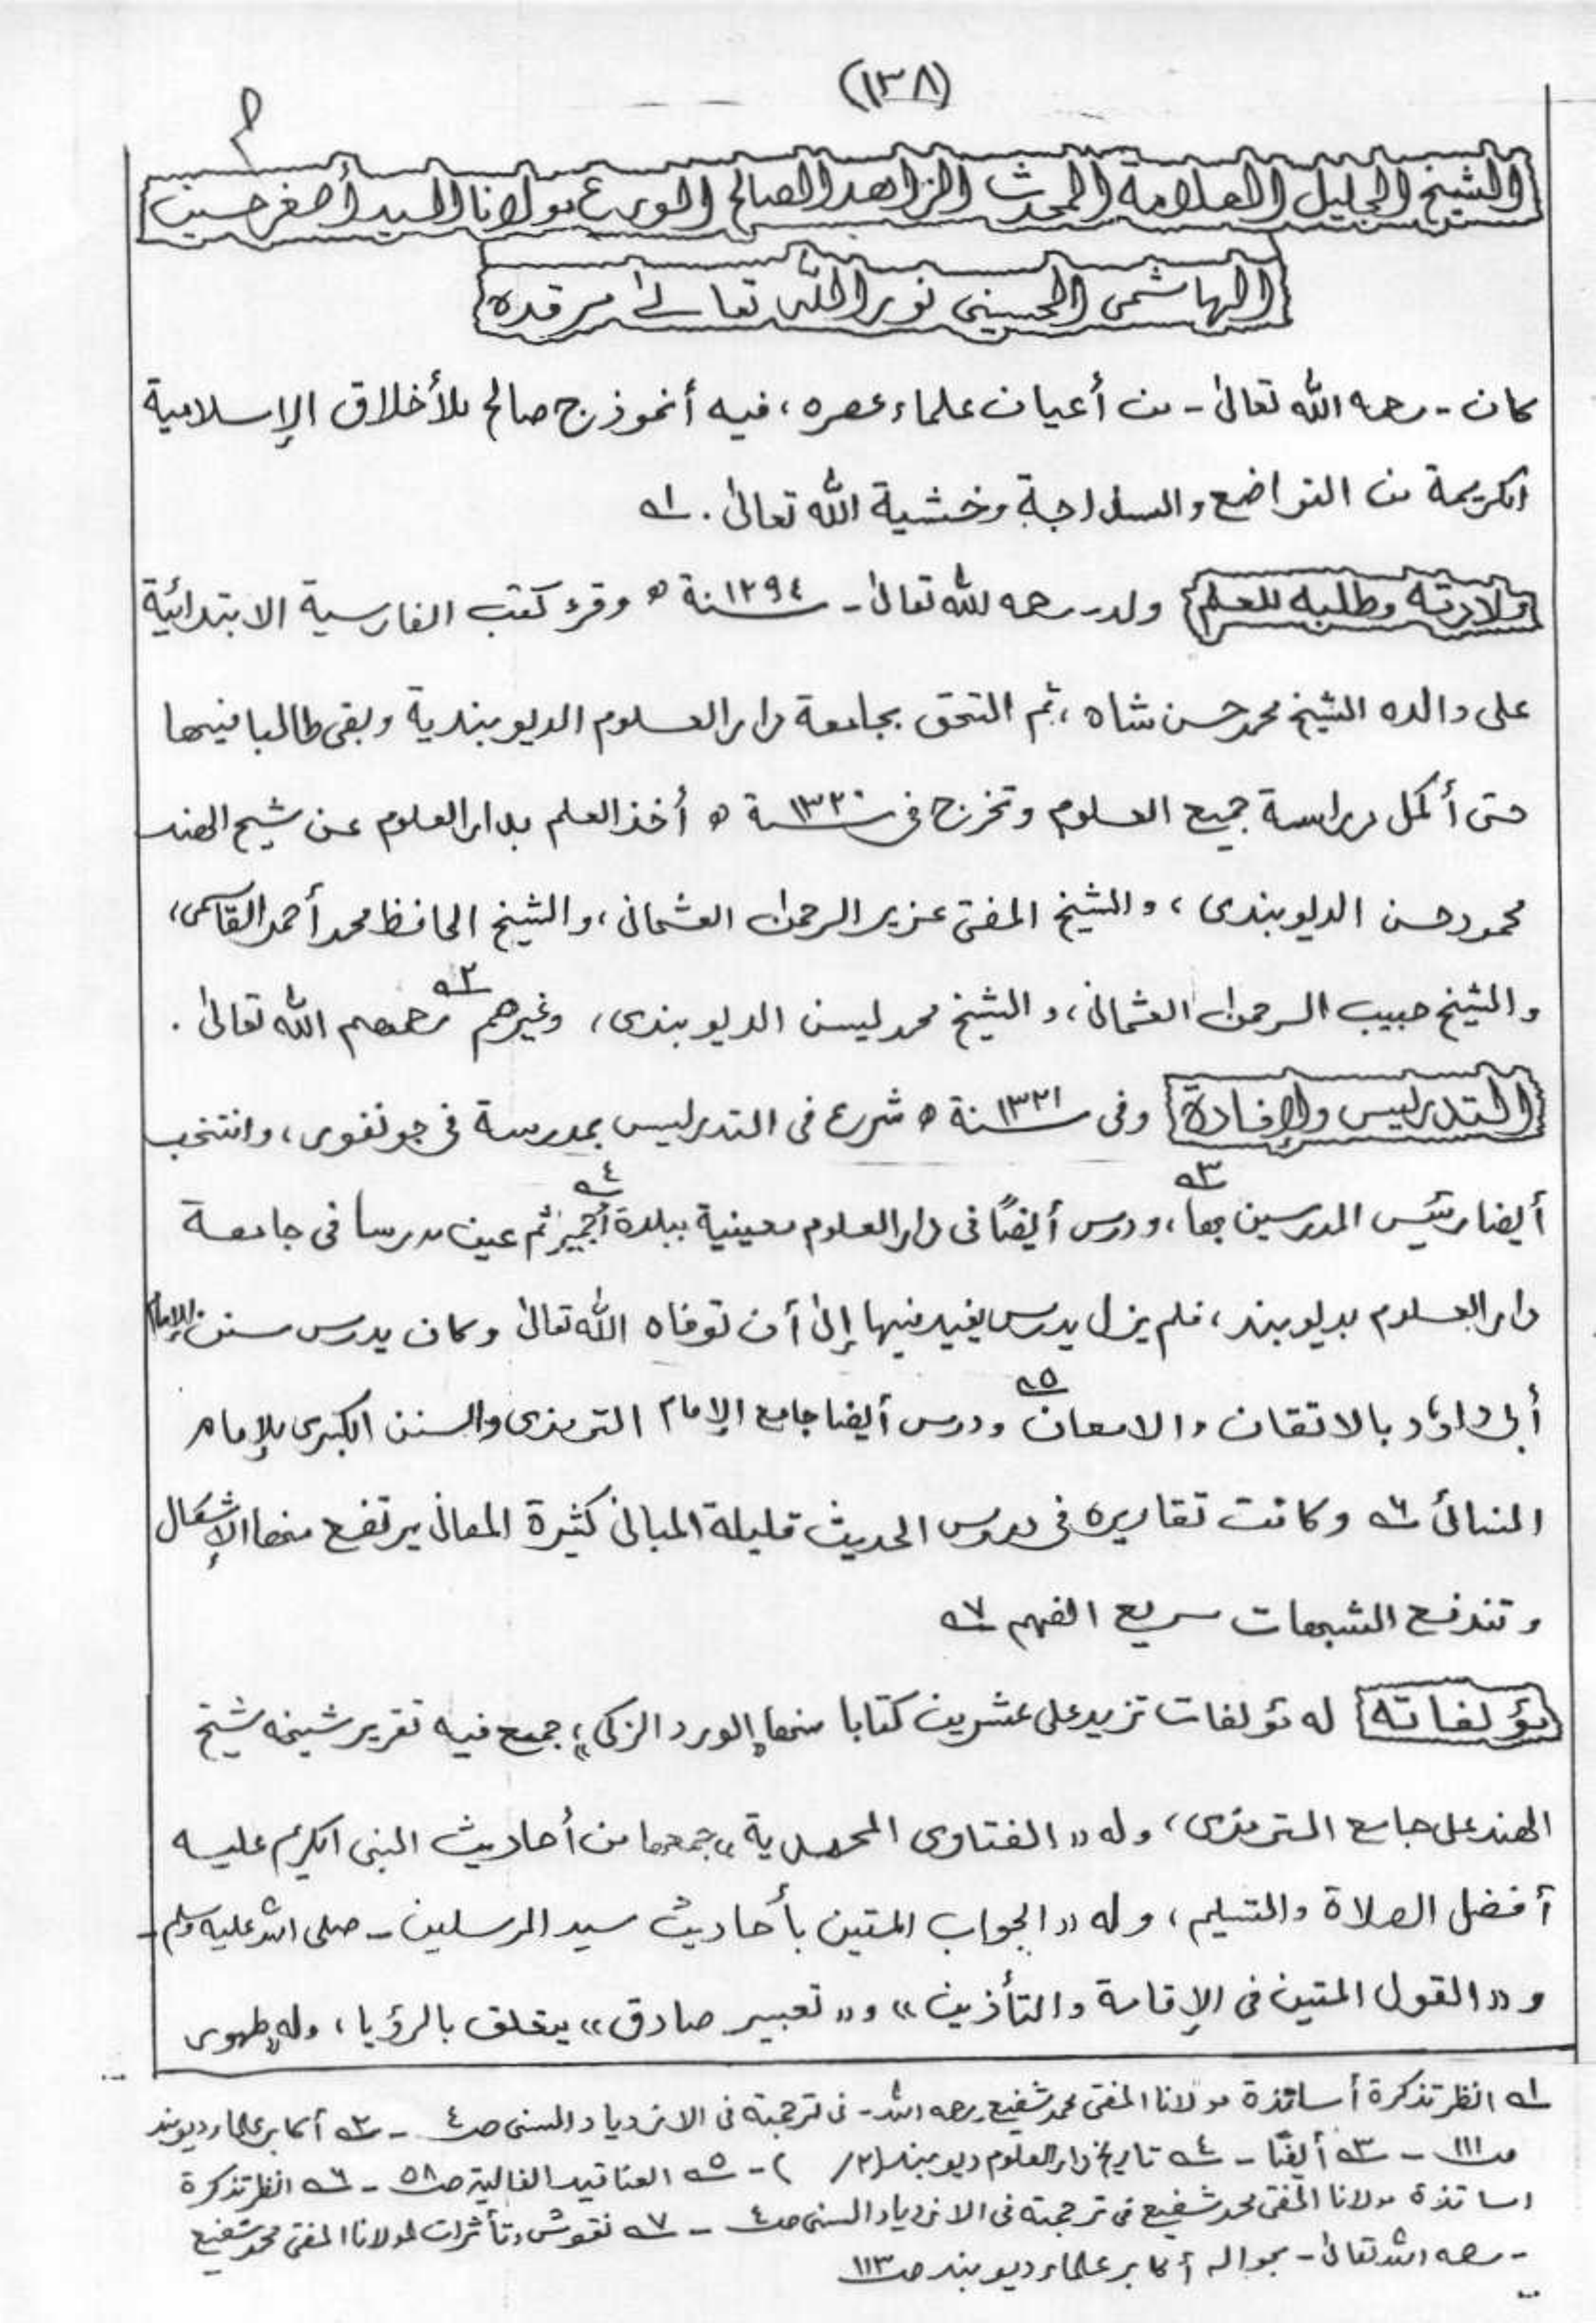 (١٣٨)
الشيخ الجليل العلامة المحدث الزاهد الصالح الورع مولانا السيد أصغر حسين
الهاشمى الحسينى نور الله تعالىٰ مرقده
كان - رحمه الله تعالىٰ - من أعيان علماء عصره، فيه أنموذج صالح للأخلاق الإسلامية
الكريمة من التواضع والسذاجة وخشية الله تعالىٰ. ١ه
ولادته وطلبه للعلم ولد - رحمه الله تعالىٰ - سنة ١٢٩٤ ه وقرء كتب الفارسية الابتدائية
على والده الشيخ محمد حسن شاه، ثم التحق بجامعة دار العلوم الديوبندية وبقى طالبا فيها
حتى أكمل دراسة جميع العلوم وتخرج فى سنة ١٣٢٠ ه أخذ العلم بدار العلوم عن شيخ الهند
محمود حسن الديوبندى، والشيخ المفتى عزيز الرحمٰن العثمانى، والشيخ الحافظ محمد أحمد القاسمى،
والشيخ حبيب الرحمٰن العثمانى، والشيخ محمد ليسن الديوبندى، وغيرهم ٢ه رحمهم الله تعالىٰ.
التدريس والإفادة وفى سنة ١٣٢١ ه شرع فى التدريس بمدرسة فى جونفور، وانتخب
أيضا رئيس المدرسين بها، ٣ه ودرس أيضًا فى دار العلوم معينية ببلدة أجمير ٤ه ثم عين مدرسا فى جامعة
دار العلوم بديوبند، فلم يزل يدرس يفيد فيها إلىٰ أن توفاه الله تعالىٰ وكان يدرس سنن الإمام
أبى داؤد بالاتقان والامعان ٥ه ودرس أيضا جامع الإمام الترمذى والسنن الكبرى للإمام
النسائى ٦ه وكانت تقاريره فى دروس الحديث قليلة المبانى كثيرة المعانى يرتفع منها الإشكال
وتندفع الشبهات سريع الفهم ٧ه
مؤلفاته له مؤلفات تزيد على عشرين كتابا منها "الورد الزكى" جمع فيه تقرير شيخه شيخ
الهند على جامع الترمذى، وله «الفتاوى المحمدية» جمعها من أحاديث النبى الكريم عليه
أفضل الصلاة والتسليم، وله «الجواب المتين بأحاديث سيد المرسلين - صلى الله عليه وسلم -
و «القول المتين فى الإقامة والتأذين» و «تعبير صادق» يتعلق بالرؤيا، وله "طهور
١ه انظر تذكرة أساتذة مولانا المفتى محمد شفيع رحمه الله - فى ترجمته فى الازدياد السنى ص٤ - ٢ه أكابر علماء ديوبند
ص١١١ - ٣ه أيضًا - ٤ه تاريخ دار العلوم ديوبند (٢/ ) - ٥ه العناقيد الغالية ص٥٨ - ٦ه انظر تذكرة
اساتذة مولانا المفتى محمد شفيع فى ترجمته فى الازدياد السنى ص٤ - ٧ه نقوش وتأثرات لمولانا المفتى محمد شفيع
- رحمه الله تعالىٰ - بحواله أكابر علماء ديوبند ص١١٣